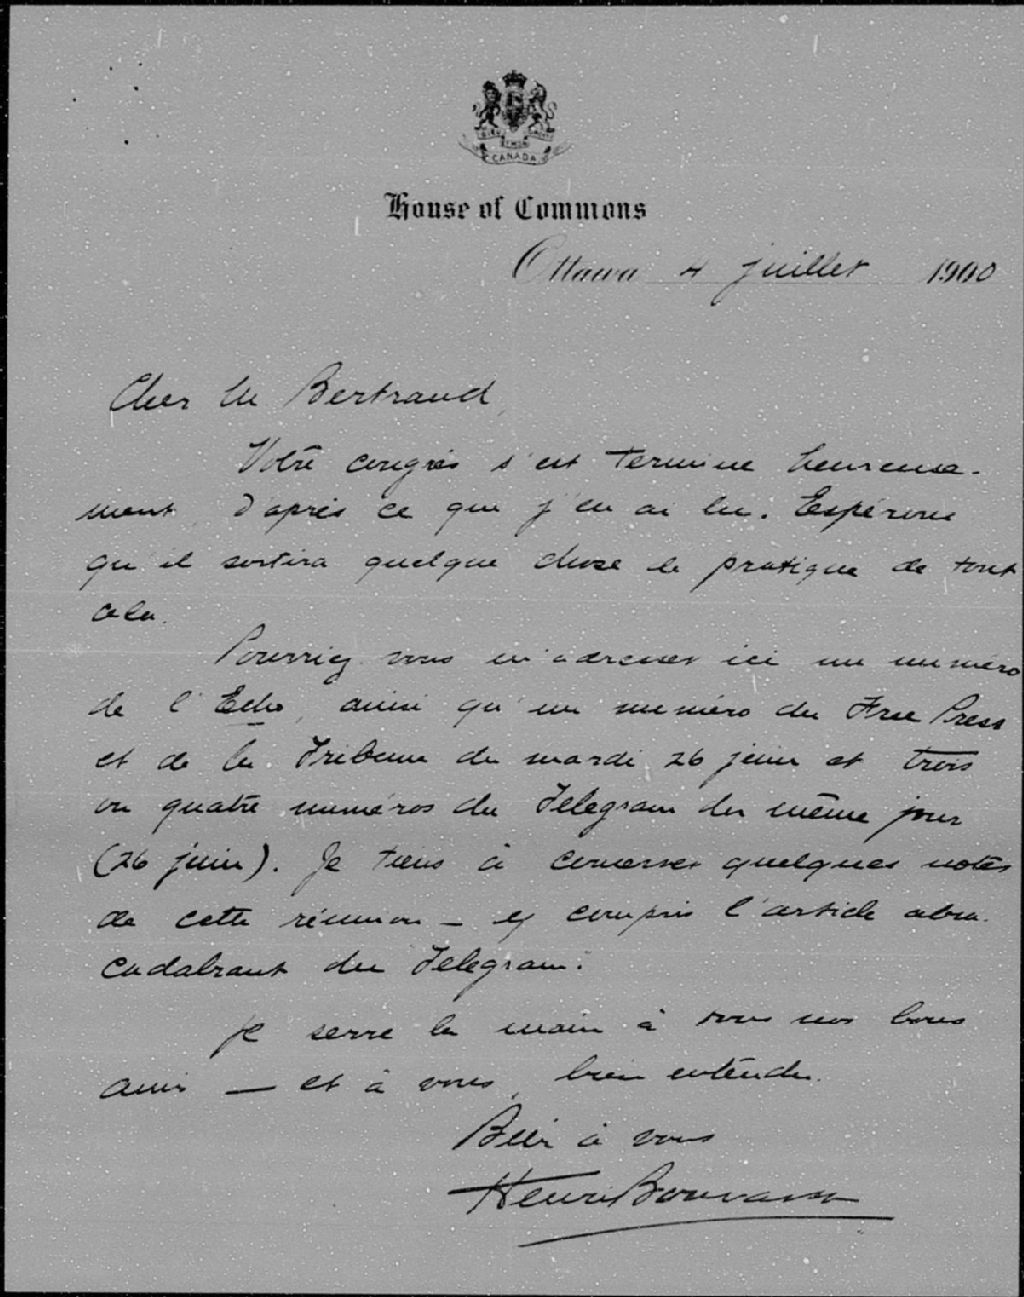 CANADA
House of Commons
Ottawa 4 juillet 1900
Cher M Bertrand,
Votre congrès s'est terminé heureuse-
ment, d'après ce que j'en ai lu. Espérons
qu'il sortira quelque chose de pratique de tout
cela.
Pourriez vous m'adresser ici un numéro
de l'Echo, ainsi qu'un numéro du Free Press
et de la Tribune du mardi 26 juin et trois
ou quatre numéros du Telegram du même jour
(26 juin). Je tiens à conserver quelques notes
de cette réunion — y compris l'article abra-
cadabrant du Telegram.
Je serre la main à tous nos bons
amis — et à vous, bien entendu.
Bien à vous
Henri Bourassa